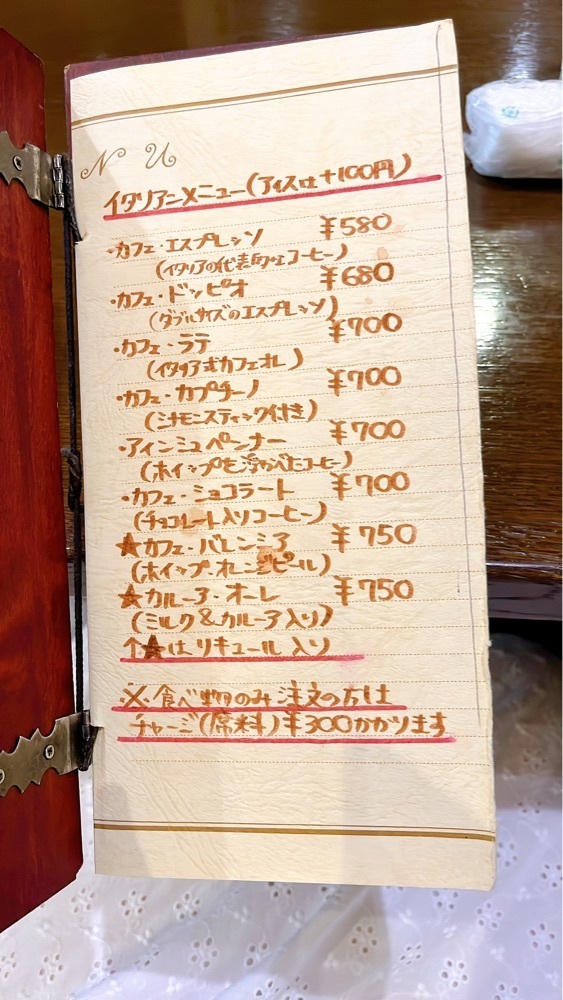 N U
イタリアンメニュー(アイスは+100円)
・カフェ・エスプレッソ ¥580
(イタリアの代表的なコーヒー)
・カフェ・ドッピオ ¥680
(ダブルサイズのエスプレッソ)
・カフェ・ラテ ¥700
(イタリア式カフェオレ)
・カフェ・カプチーノ ¥700
(シナモンスティック付き)
・アインシュペンナー ¥700
(ホイップを浮かべたコーヒー)
・カフェ・ショコラート ¥700
(チョコレート入りコーヒー)
★カフェ・バレンシア ¥750
(ホイップ・オレンジピール)
★カルーア・オーレ ¥750
(ミルク&カルーア入り)
↑★はリキュール入り
※食べ物のみ注文の方は
チャージ(席料)¥300かかります